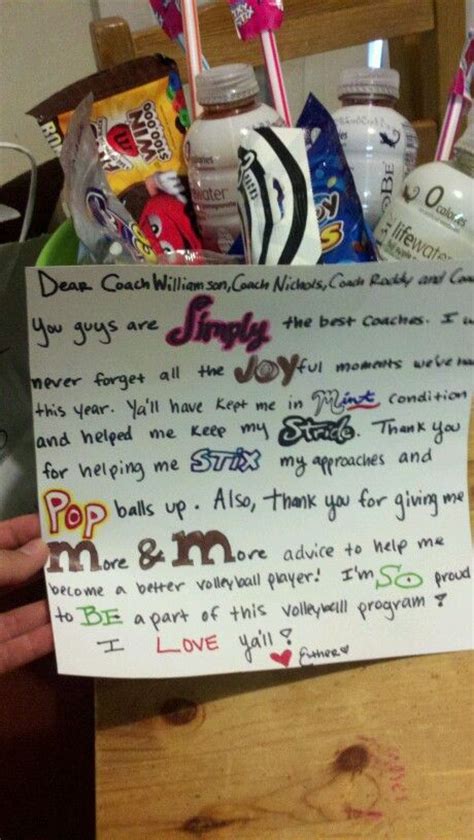 STIX
M
WIN
$100,000
0 calories
lifewater
water
BE
joy
Dear Coach Williamson, Coach Nichols, Coach Roddy and
You guys are Simply the best coaches. I
never forget all the JOYful moments we've
this year. Ya'll have kept me in Mint condition
and helped me keep my Stride. Thank you
for helping me STIX my approaches and
Pop balls up. Also, thank you for giving me
More & More advice to help me
become a better volleyball player! I'm SO proud
to BE a part of this volleyball program!
I LOVE ya'll!
Esther